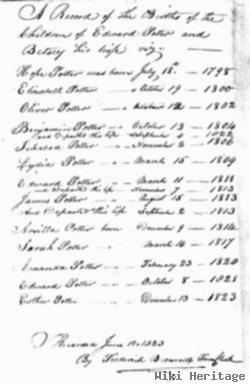 A Record of the Births of the
Children of Edward Potter and
Betsey his wife viz
Hope Potter was born July 18th 1798
Elizabeth Potter October 19 - 1800
Oliver Potter October 12 - 1802
Benjamin Potter October 13 - 1804
and Departed this life September
Johnson Potter November 2 - 1806
Lydia Potter March 15 - 1809
Edward Potter March 11 - 1811
and Departed this life November 7 - 1813
James Potter August 15 - 1813
And Departed this life September 2 - 1813
Arvilla Potter born December 9 - 1814
Sarah Potter March 14 - 1817
Amanda Potter February 23 - 1820
Edward Potter October 8 - 1821
Esther Potter December 13 - 1823
Recorded June 1823
By Frederick
Wiki Heritage